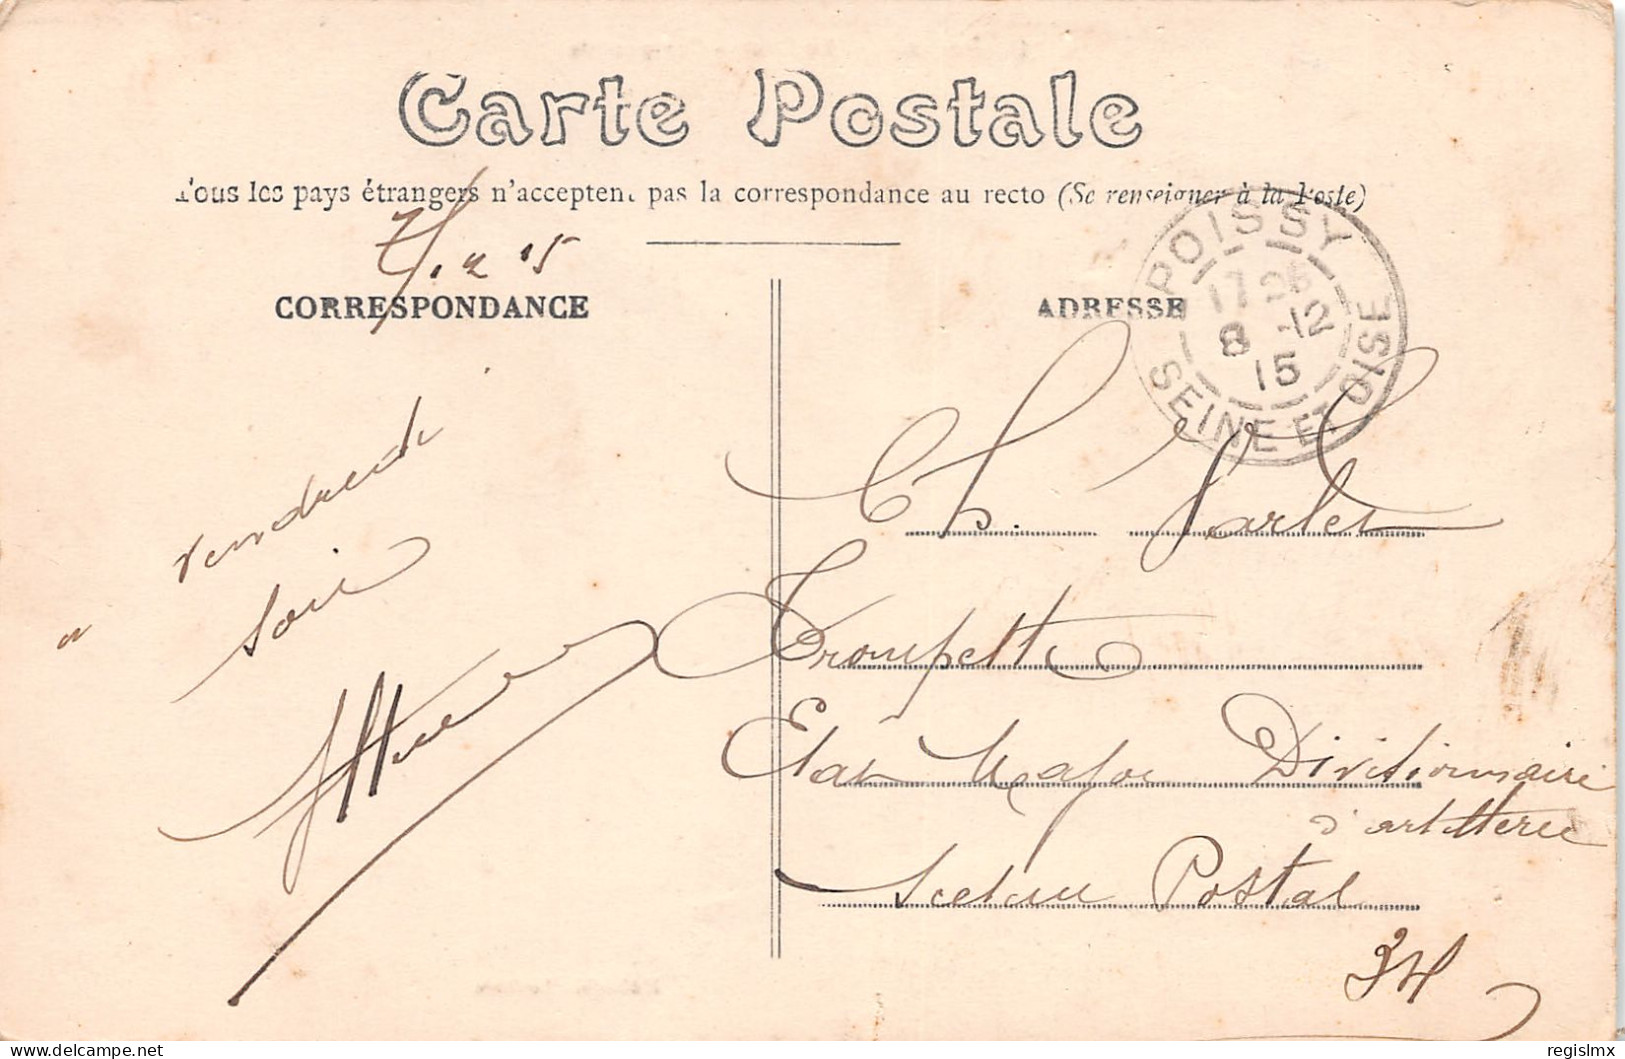 Carte Postale
Tous les pays étrangers n'acceptent pas la correspondance au recto (Se renseigner à la Poste)
CORRESPONDANCE
ADRESSE
POISSY
17 25
8 -12
15
SEINE ET OISE
vendredi
soir
Ch. Varlet
Trompette
Etat Major Divitionnaire
d'artillerie
Secteur Postal
34
regislmx